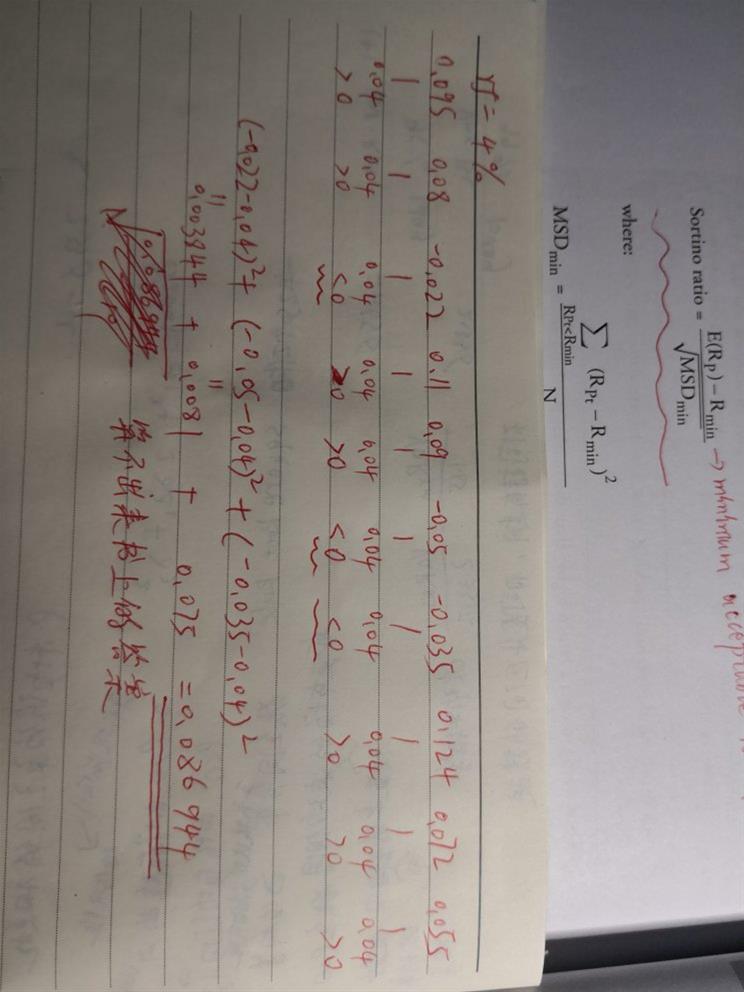 Sortino ratio = E(R_P) − R_min / √MSD_min → minimum acceptable
where:
MSD_min = ∑_{R_Pt<R_min} (R_Pt − R_min)² / N
rf = 4%
0.095 0.08 -0.022 0.11 0.09 -0.05 -0.035 0.124 0.072 0.055
| | | | | | | | | |
0.04 0.04 0.04 0.04 0.04 0.04 0.04 0.04 0.04 0.04
>0 >0 <0 >0 >0 <0 <0 >0 >0 >0
(-0.022-0.04)² + (-0.05-0.04)² + (-0.035-0.04)²
0.003944 + 0.0081 + 0.075 = 0.086944
算不出来书上的答案